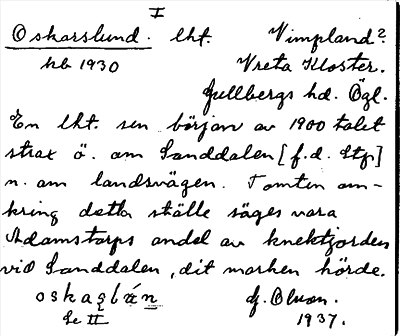 I
Oskarslund. lht. Vimpland?
kb 1930 Vreta Kloster.
Gullbergs hd. Ögl.
En lht. sen början av 1900 talet
strax ö. om Sanddalen [f.d. Stp]
n. om landsvägen. Tomten om-
kring detta ställe säges vara
Adamstorps andel av knektjorden
vid Sanddalen, dit marken hörde.
1937.